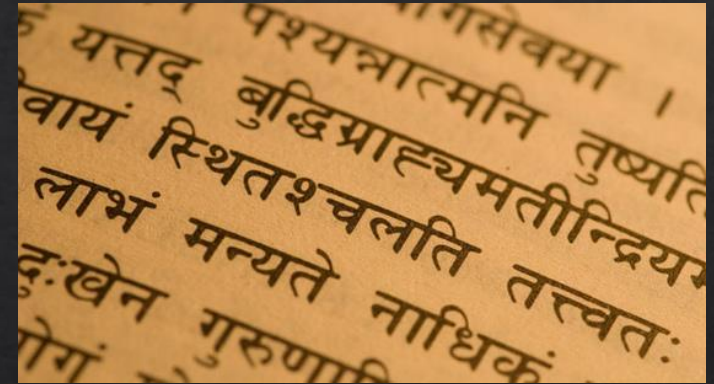 योगसेवया ।
पश्यन्नात्मनि तुष्यति
यत्तद् बुद्धिग्राह्यमतीन्द्रियम
वायं स्थितश्चलति तत्त्वतः
लाभं मन्यते नाधिकं
दुःखेन गुरुणा
योगं